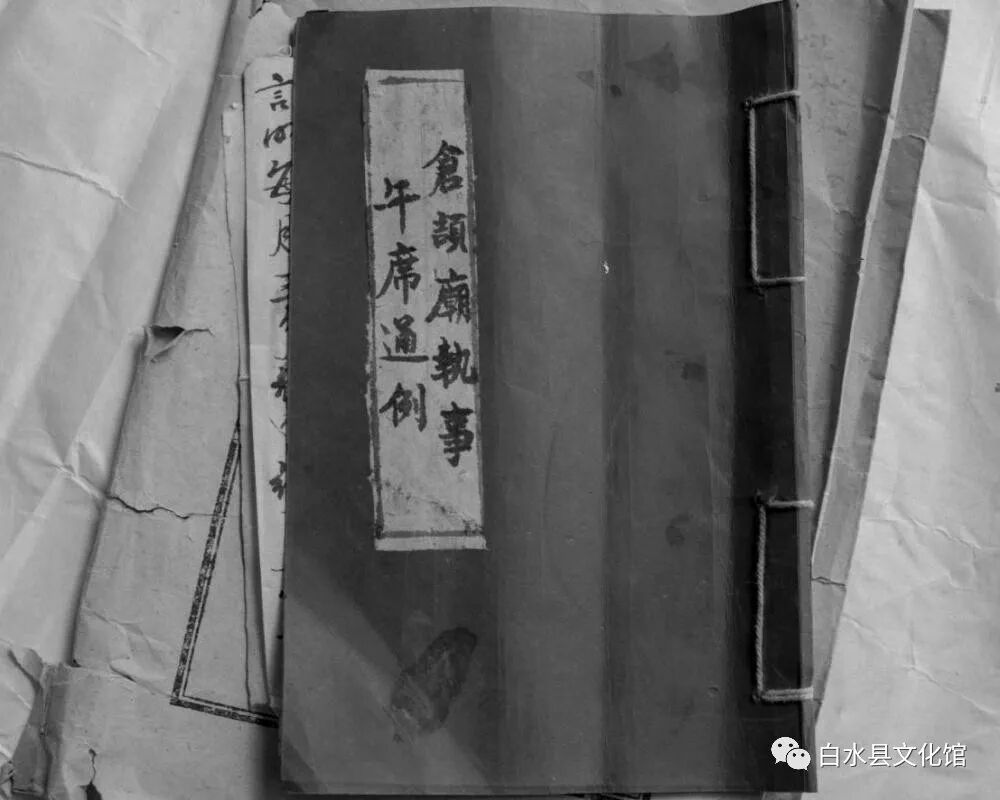 倉頡廟執事
午席通例
言明每月
白水县文化馆